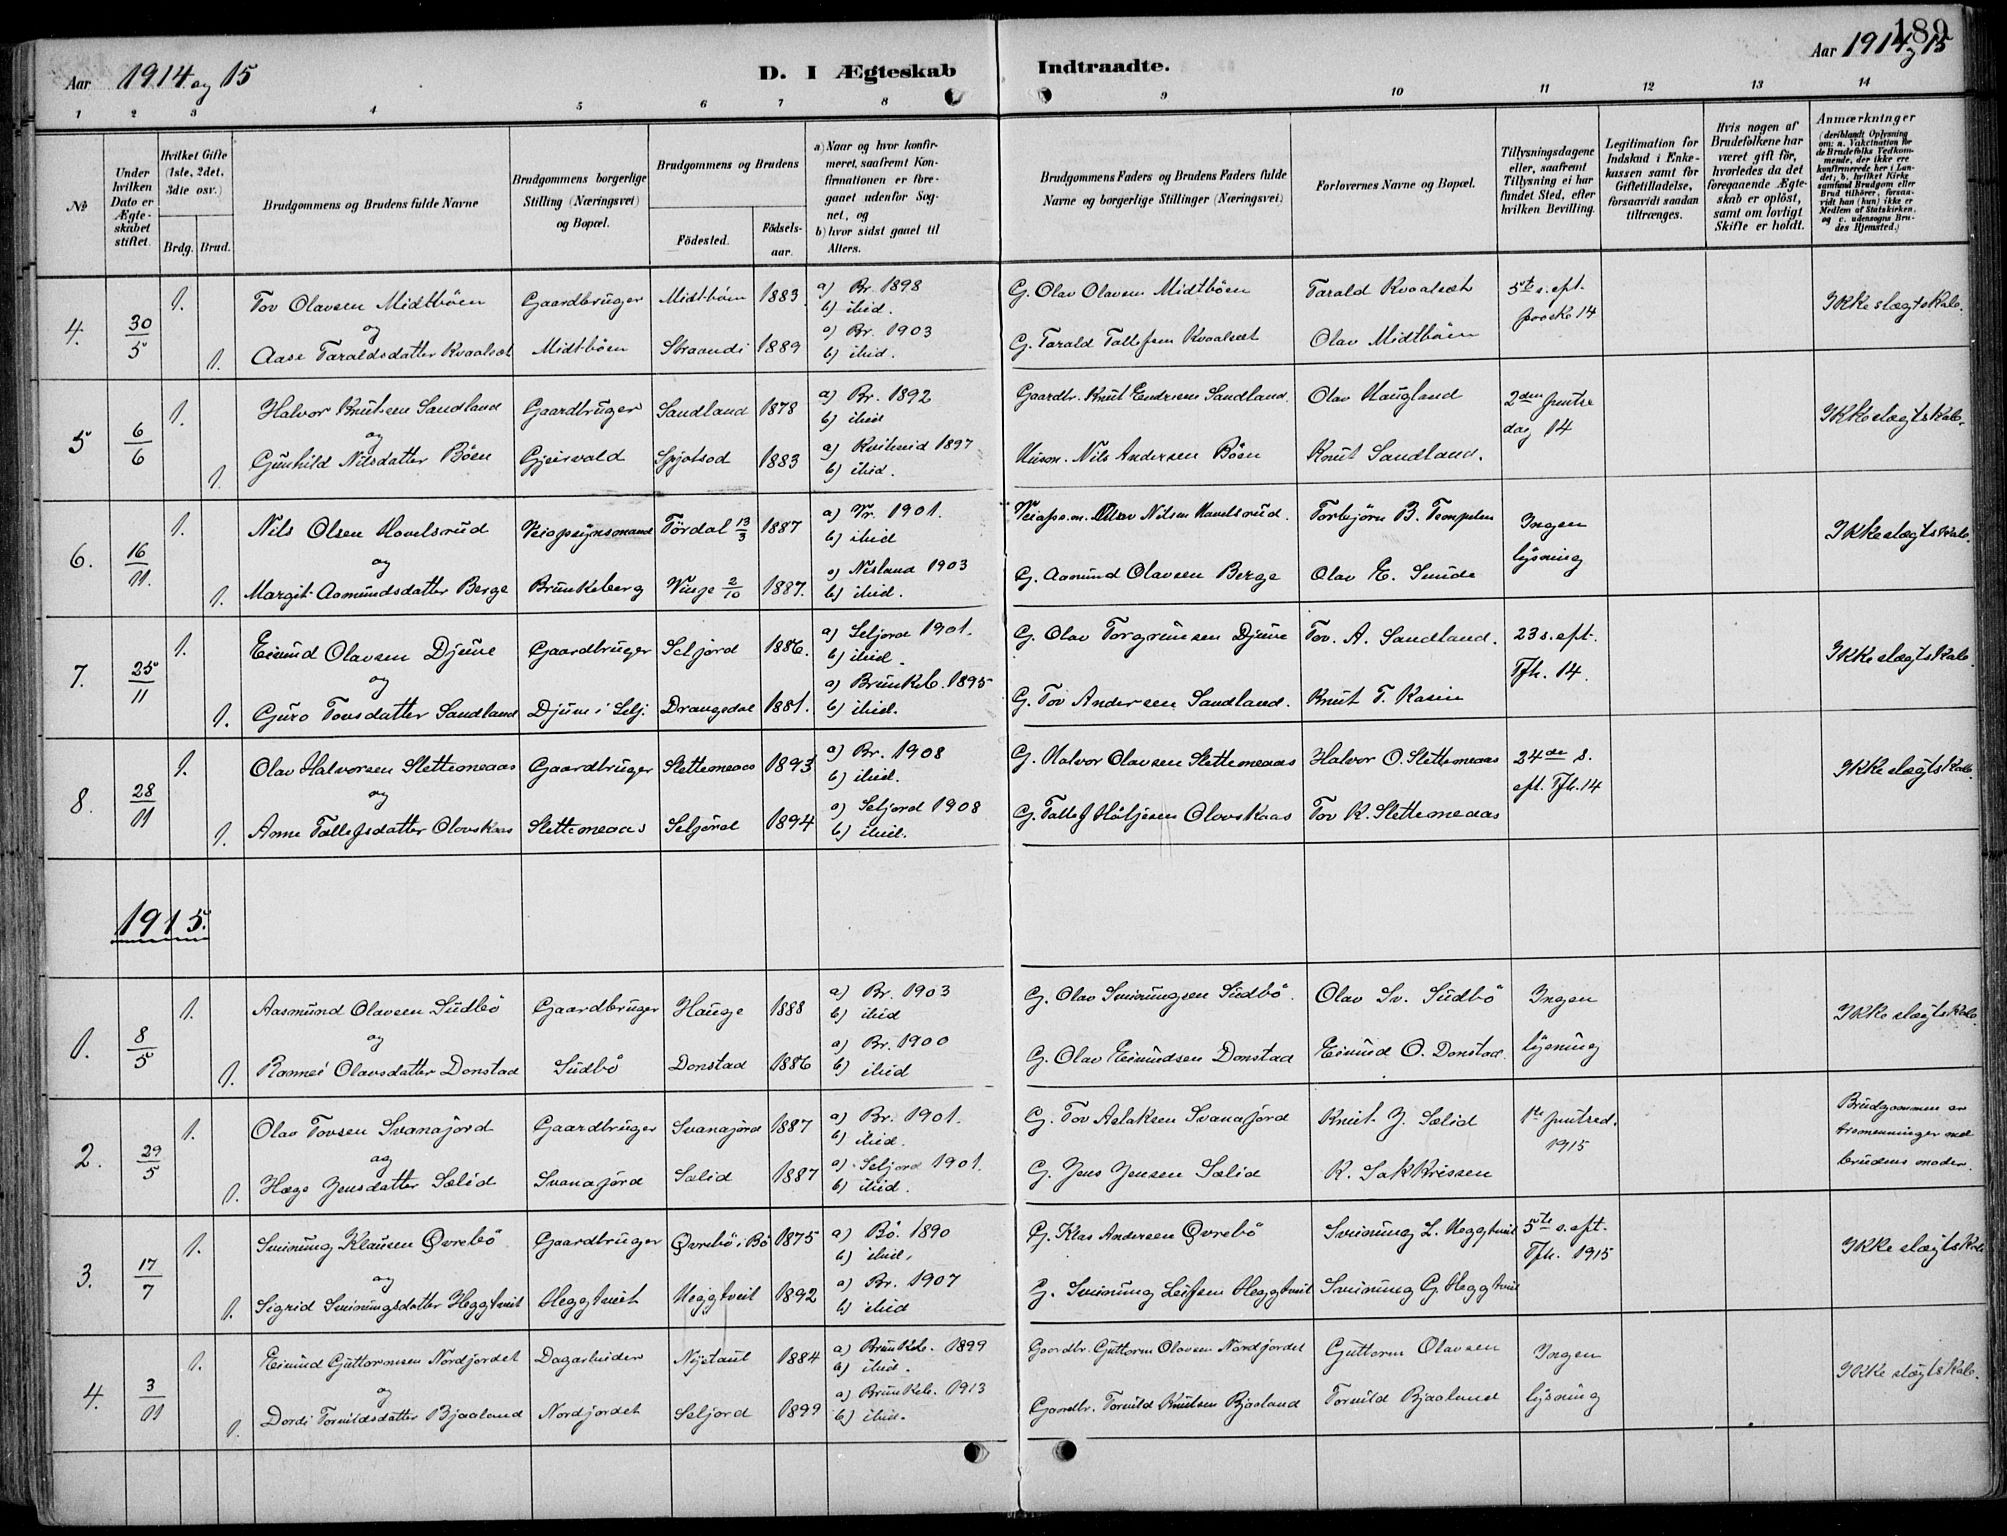 189
Aar 1914 og 15
D. I Ægteskab Indtraadte.
Aar 1914 og 15
1 2 3 4 5 6 7 8 9 10 11 12 13 14
№
Under hvilken Dato er Ægteskabet stiftet.
Hvilket Gifte (1ste, 2det, 3die osv.)
Brdg. Brud.
Brudgommens og Brudens fulde Navne
Brudgommens borgerlige Stilling (Næringsvei) og Bopæl.
Brudgommens og Brudens
Födested.
Födsels-aar.
a) Naar og hvor konfirmeret, saafremt Konfirmationen er foregaaet udenfor Sognet, og
b) hvor sidst gaaet til Alters.
Brudgommens Faders og Brudens Faders fulde Navne og borgerlige Stillinger (Næringsvei)
Forlovernes Navne og Bopæl.
Tillysningsdagene eller, saafremt Tillysning ei har fundet Sted, efter hvilken Bevilling.
Legitimation for Indskud i Enkekassen samt for Giftetilladelse, forsaavidt saadan tiltrænges.
Hvis nogen af Brudefolkene har været gift för, hvorledes da det foregaaende Ægteskab er oplöst, samt om lovligt Skifte er holdt.
Anmærkninger
(deriblandt Oplysning om: a. Vakcination for de Brudefolks Vedkommende, der ikke ere konfirmerede her i Landet; b. hvilket Kirkesamfund Brudgom eller Brud tilhörer, forsaavidt han (hun) ikke er Medlem af Statskirken, og c. udensogns Brudes Hjemsted.)
4. 30/5 1. Tov Olavsen Midtböen Gaardbruger Midtböen 1883 a) Br. 1898 b) ibid. G. Olav Olavsen Midtböen Tarald Kvaalset 5te s. eft. paaske 14 Ikke slægtskab.
og
1. Aase Taraldsdatter Kvaalset Midtböen Straandi 1889 a) Br. 1903 b) ibid. G. Tarald Tallefsen Kvaalset Olav Midtböen
5 6/6 1. Halvor Knutsen Sandland Gaardbruger Sandland 1878 a) Br. 1892 b) ibid Gaardbr. Knut Endresen Sandland. Olav Haugland 2den pintsedag 14 Ikke slægtskab.
og
1. Gunhild Nilsdatter Böen Gjeirvald Spjotsod 1883 a) Kviteseid 1897 b) ibid. Husm. Nils Andersen Böen Knut Sandland.
6. 16/11. 1. Nils Olsen Havelsrud Veiopsynsmand Tördal 13/3 1887 a) Vr. 1901. b) ibid Veiops.m. Olav Nilsen Havelsrud. Torbjörn B. Tempelen Ingen lysning Ikke slægtskab.
og
1. Margit Aamundsdatter Berge Brunkeberg Vinje 2/10 1887. a) Nesland 1903 b) ibid. G. Aamund Olavsen Berge Olav E. Smude
7. 25/11 1. Eivind Olavsen Djuve Gaardbruger Seljord 1886. a) Seljord 1901. b) ibid. G. Olav Torgrimsen Djuve Tov. A. Sandland. 23 s. eft. Tfh. 14. Ikke slægtskab.
og
1. Guro Tovsdatter Sandland Djuve i Selj. Drangedal 1881. a) Brunkeb. 1895 b) ibid. G. Tov Andersen Sandland. Knut T. Kasin
8. 28/11 1. Olav Halvorsen Slettemeaas Gaardbruger Slettemeaas 1893 a) Br. 1908 b) ibid. G. Halvor Olavsen Slettemeaas Halvor O. Slettemeaas 24de s. eft. Tfh. 14 Ikke slægtskab.
og
1. Anne Tallefsdatter Olavskaas Slettemeaas Seljord 1894 a) Seljord 1908 b) ibid. G. Tallef Höljesen Olavskaas Tov K. Slettemeaas
1915.
1. 8/5 1. Aasmund Olavsen Sudbö Gaardbruger Hauge 1888 a) Br. 1903 b) ibid G. Olav Sveinungsen Sudbö. Olav Sv. Sudbö Ingen lysning Ikke slægtskab.
og
1. Rannei Olavsdatter Donstad Sudbö Donstad 1886 a) Br. 1900 b) ibid G. Olav Eivindsen Donstad Eivind O. Donstad.
2. 29/5 1. Olav Tovsen Svanajord Gaardbruger Svanajord 1887 a) Br. 1901. b) ibid. G. Tov Aslaksen Svanajord Knut J. Sælid 1te pintsed. 1915 Brudgommen er tremenninger med brudens moder.
og
1. Hæge Jensdatter Sælid Svanajord Sælid 1887 a) Seljord 1901. b) ibid. G. Jens Jensen Sælid K. Sakkrissen
3. 17/7 1. Sveinung Klausen Øvrebö Gaardbruger Øvrebö i Bö 1875 a) Bö. 1890 b) ibid. G. Klas Andersen Øvrebö Sveinung L. Heggtveit 5te s. eft. Tfh. 1915 Ikke slægtskab
og
1. Sigrid Sveinungsdatter Heggtveit Heggtveit Heggtveit 1892 a) Br. 1907 b) ibid G. Sveinung Leifsen Heggtveit Sveinung G. Heggtveit
4. 3/11 1. Eivind Guttormsen Nordjordet Dagarbeider Nystaul 1884 a) Brunkeb. 1899 b) ibid. Gaardbr. Guttorm Olavsen Nordjordet Guttorm Olavsen Ingen lysning Ikke slægtskab.
og
1. Dordi Torvildsdatter Bjaaland Nordjordet Seljord 1899 a) Brunkeb. 1913 b) ibid. Gaardbr. Torvild Knutsen Bjaaland Torvild Bjaaland